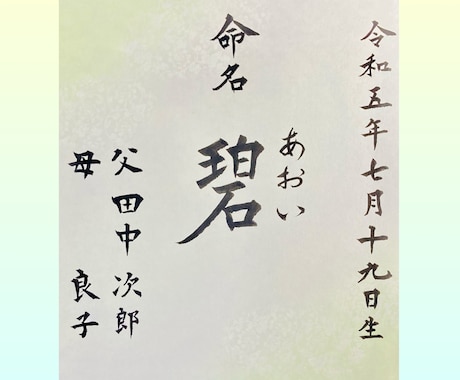 令和五年七月十九日生
命名
碧
あおい
父 田中 次郎
母 良子